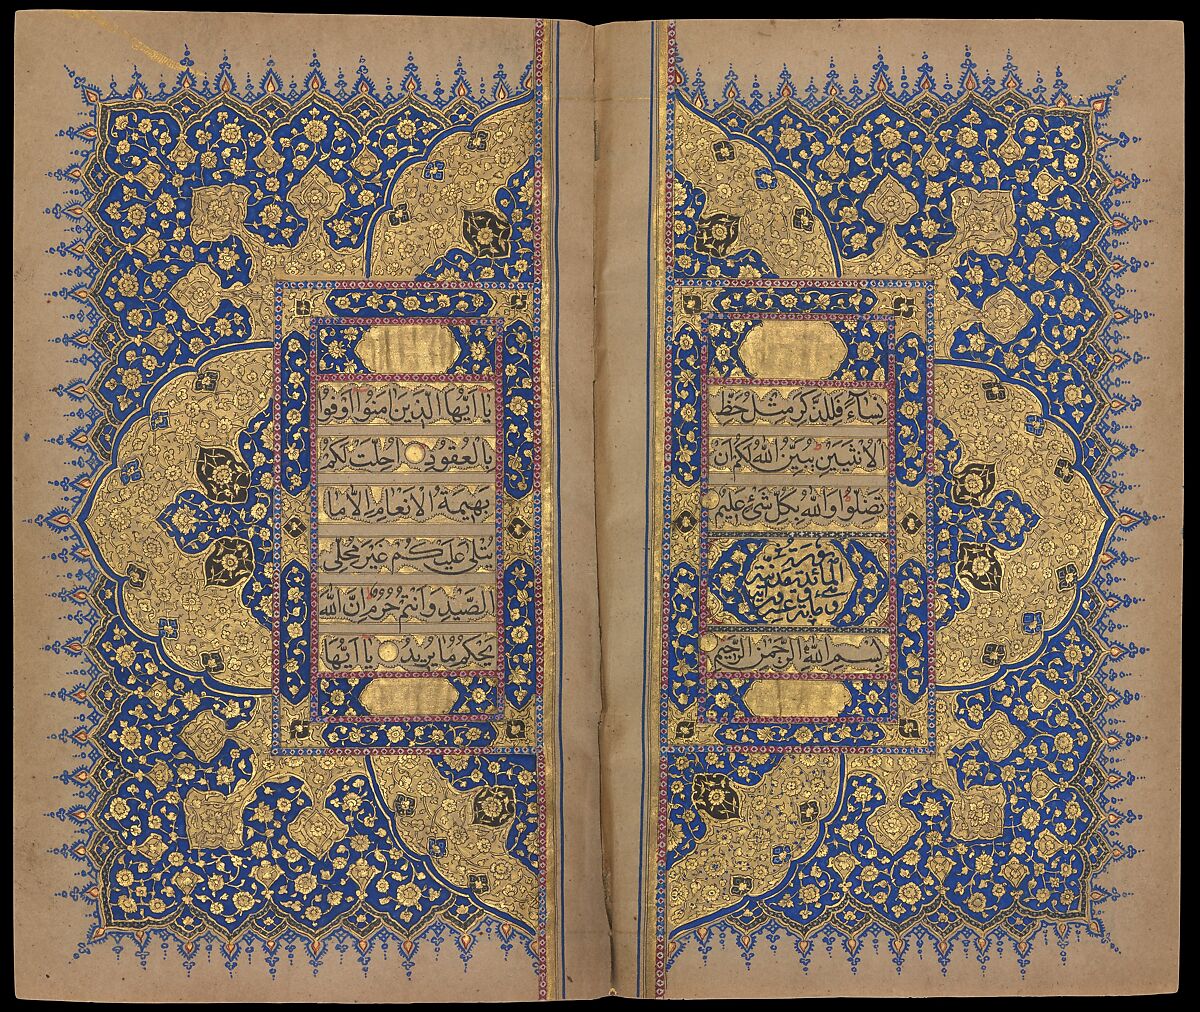 نِسَآءً فَلِلذَّكَرِ مِثْلُ حَظِّ
الْاُنْثَيَيْنِ يُبَيِّنُ اللّٰهُ لَكُمْ اَنْ
تَضِلُّوا وَاللّٰهُ بِكُلِّ شَئٍ عَلِيمٌ
سورة
المآئدة مدنية
وهى مائة وعشرون اية
بِسْمِ اللّٰهِ الرَّحْمٰنِ الرَّحِيمِ
يَا اَيُّهَا الَّذِينَ اٰمَنُوا اَوْفُوا
بِالْعُقُودِ اُحِلَّتْ لَكُمْ
بَهِيمَةُ الْاَنْعَامِ اِلَّا مَا
يُتْلٰى عَلَيْكُمْ غَيْرَ مُحِلِّى
الصَّيْدِ وَاَنْتُمْ حُرُمٌ اِنَّ اللّٰهَ
يَحْكُمُ مَا يُرِيدُ يَا اَيُّهَا